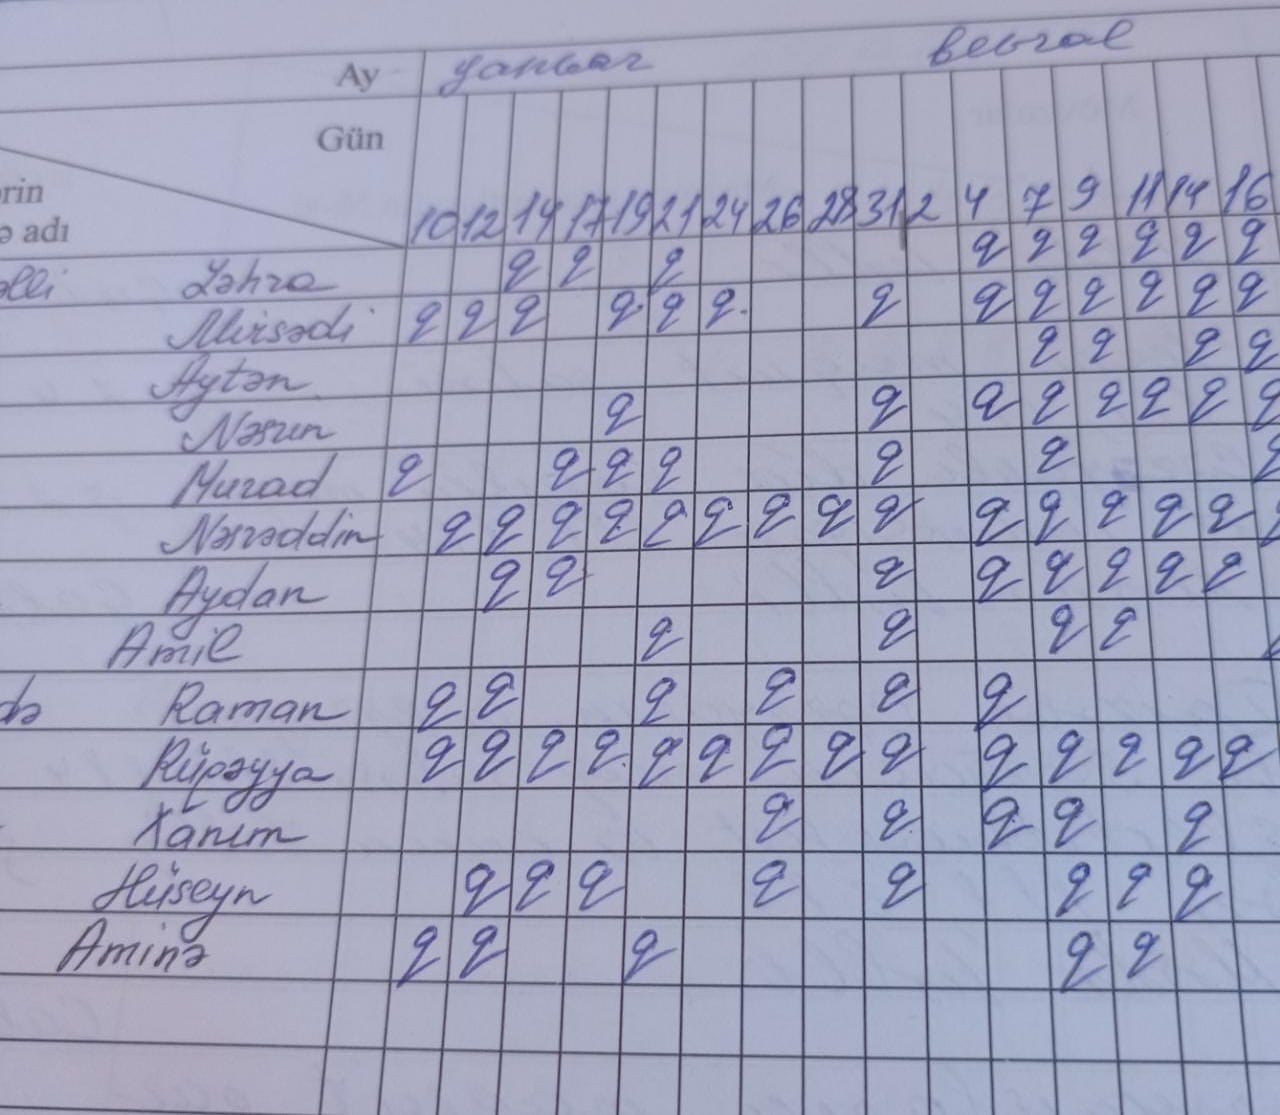 Ay yanvar fevral
Gün
rin
ə adı
10 12 14 17 19 21 24 26 28 31 2 4 7 9 11 14 16
əlli Zəhra q q q q q q q q q
Mirsədi q q q q q q q q q q q q q
Aytən q q q q
Nəsrin q q q q q q q q
Murad q q q q q q q
Nəsrəddin q q q q q q q q q q q q q q
Aydan q q q q q q q q
Amil q q q q
də Raman q q q q q q
Rüqəyya q q q q q q q q q q q q q q
Xanım q q q q q
Hüseyn q q q q q q q q
Aminə q q q q q